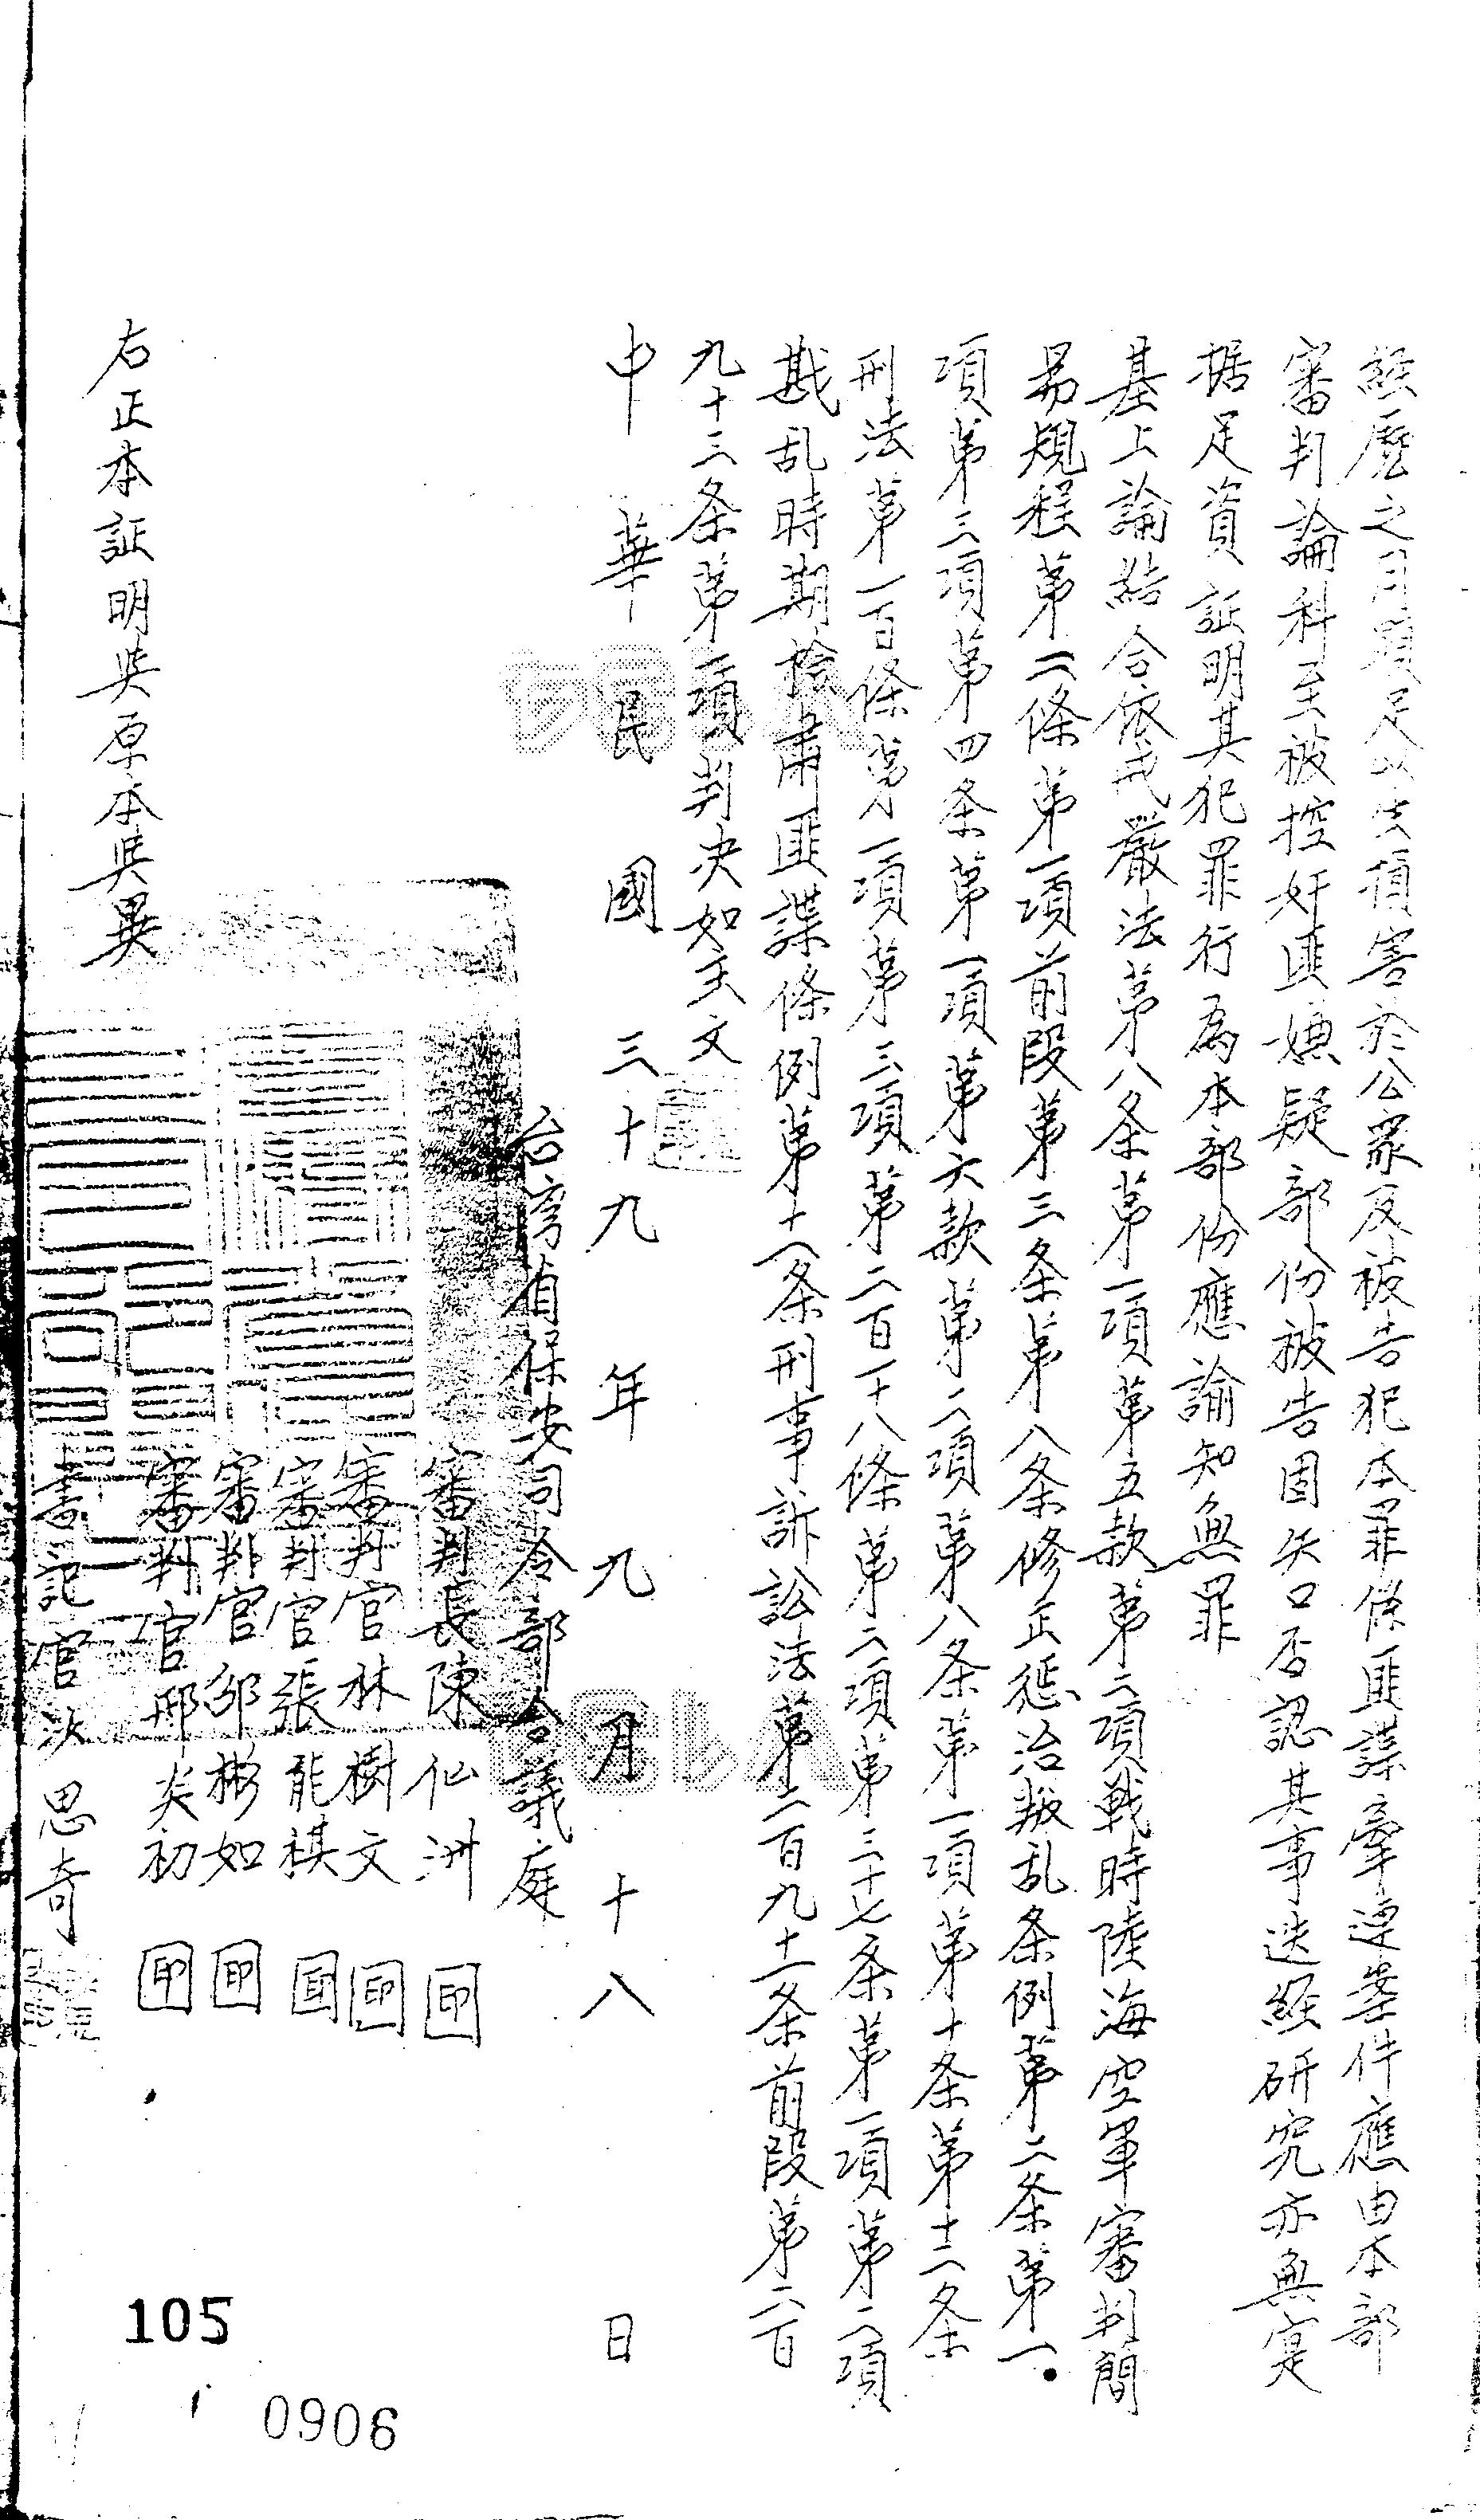 經歷之月間足以生損害於公眾及被告犯本罪係匪諜牽連案件應由本部
審判論科至被控奸匪嫌疑部份被告固矢口否認其事迭經研究亦無寔
据足資証明其犯罪行為本部份應諭知無罪
基上論結合依戒嚴法第八条第一項第五款第二項戰時陸海空軍審判簡
易規程第二條第一項前段第三条第八条修正惩治叛乱条例第二条第一.
項第三項第四条第一項第六款第二項第八条第一項第十条第十二条
刑法第一百條第一項第三項第二百一十八條第二項第三十七条第一項第二項
戡乱時期撿肅匪諜條例第十一条刑事訴訟法第二百九十一条前段第二百
九十三条第一項判决如主文
中華民國三十九年九月十八日
台湾省保安司令部合議庭
審判長陳仙洲 印
審判官林樹文 印
審判官張龍祺 印
審判官邹彬如 印
審判官邢炎初 印
書記官 思奇
右正本証明與原本無異
105
0906